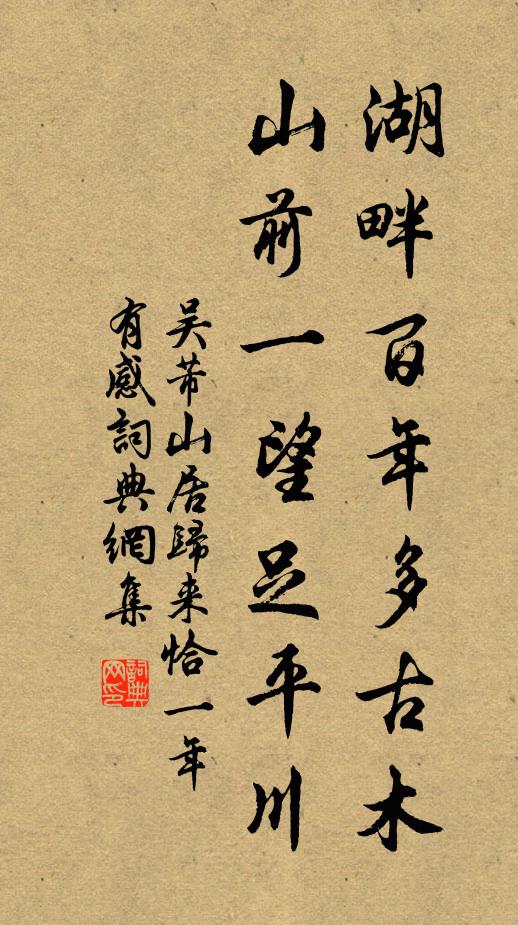 湖畔百年多古木
山前一望足平川
吴芾山居歸来恰一年
有感詞典網集
詞典网印